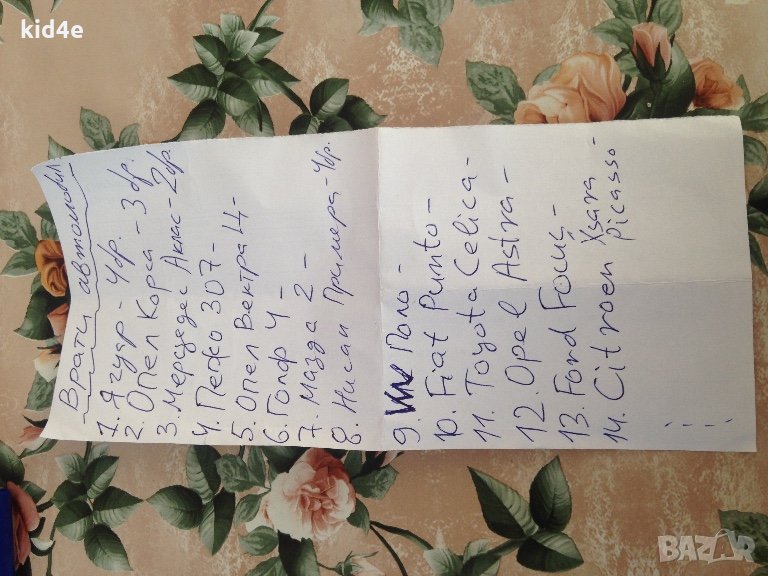 kid4e
Врати автомобил.
1. Ягуар - 4бр.
2. Опел Корса - 3бр.
3. Мерцедес Аклас - 2бр.
4. Пежо 307 -
5. Опел Вектра Ц -
6. Голф 4 -
7. Мазда 2 -
8. Нисан Примера - 4бр.
9. Поло -
10. Fiat Punto -
11. Toyota Celica -
12. Opel Astra -
13. Ford Focus -
14. Citroen Xsara -
Picasso -
BAZAR